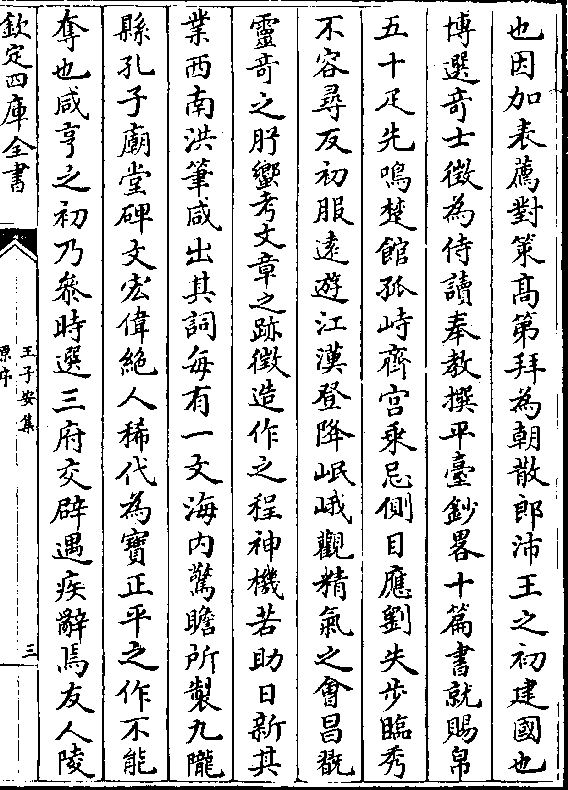 也因加表薦對策髙第拜為朝散郎沛王之初建國也
博選竒士徴為侍讀奉教撰平臺鈔畧十篇書就賜帛
五十疋先鳴楚館孤峙齊宫乘忌側目應劉失步臨秀
不容尋反初服逺遊江漢登降岷峨觀精氣之會昌翫
靈竒之肸蠁考文章之跡徴造作之程神機若助日新其
業西南洪筆咸出其詞毎有一文海内驚瞻所製九隴
縣孔子廟堂碑文宏偉絶人稀代為寳正平之作不能
奪也咸亨之初乃叅時選三府交辟遇疾辭焉友人陵
欽定四庫全書
王子安集
原序
三